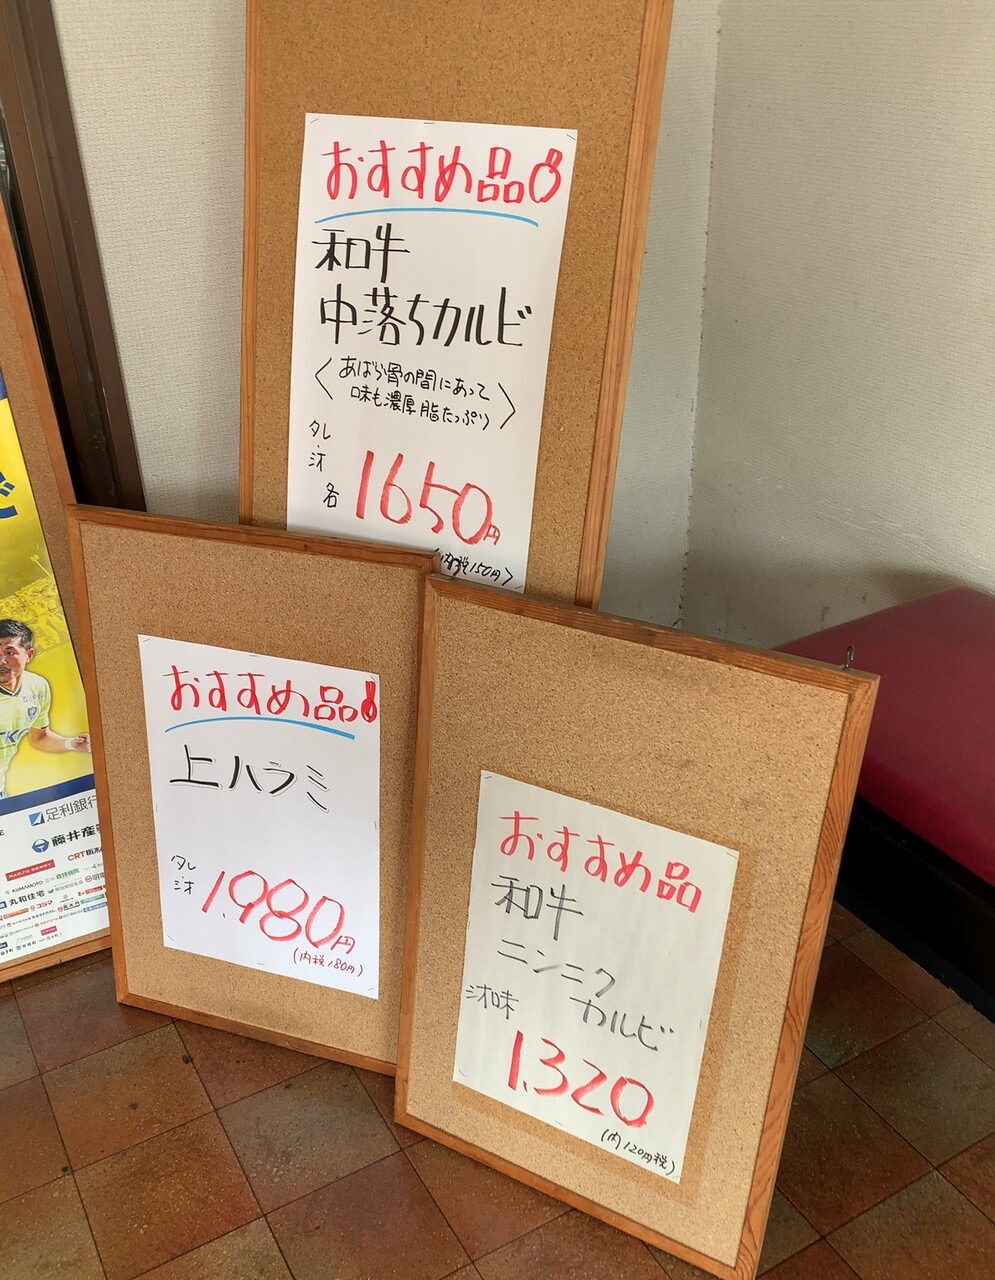 おすすめ品
和牛
中落ちカルビ
〈あばら骨の間にあって
味も濃厚脂たっぷり〉
タレ・汐
各
1650円
(内税150円)
おすすめ品
上ハラミ
タレ・汐
1.980円
(内税180円)
おすすめ品
和牛
ニンニク
カルビ
汐味
1.320
(内120円税)
足利銀行
藤井産
CRT栃木
丸和住宅
コジマ
KUMAMOTO